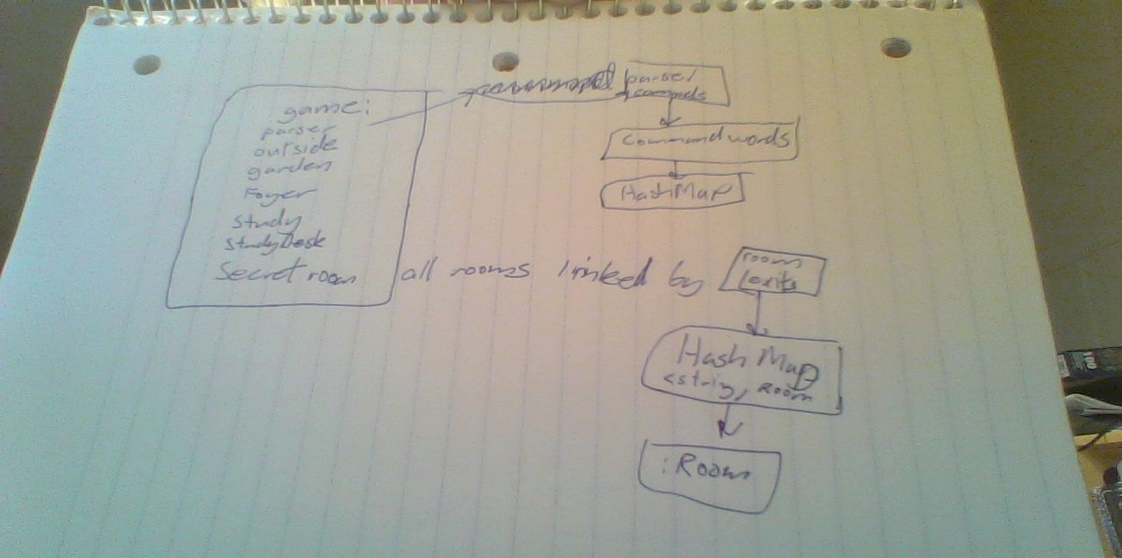 game:
parser
outside
garden
Foyer
study
studyDesk
Secret room
parser
commands
commandwords
HashMap
all rooms linked by
room
exits
HashMap
<string, Room
:Room